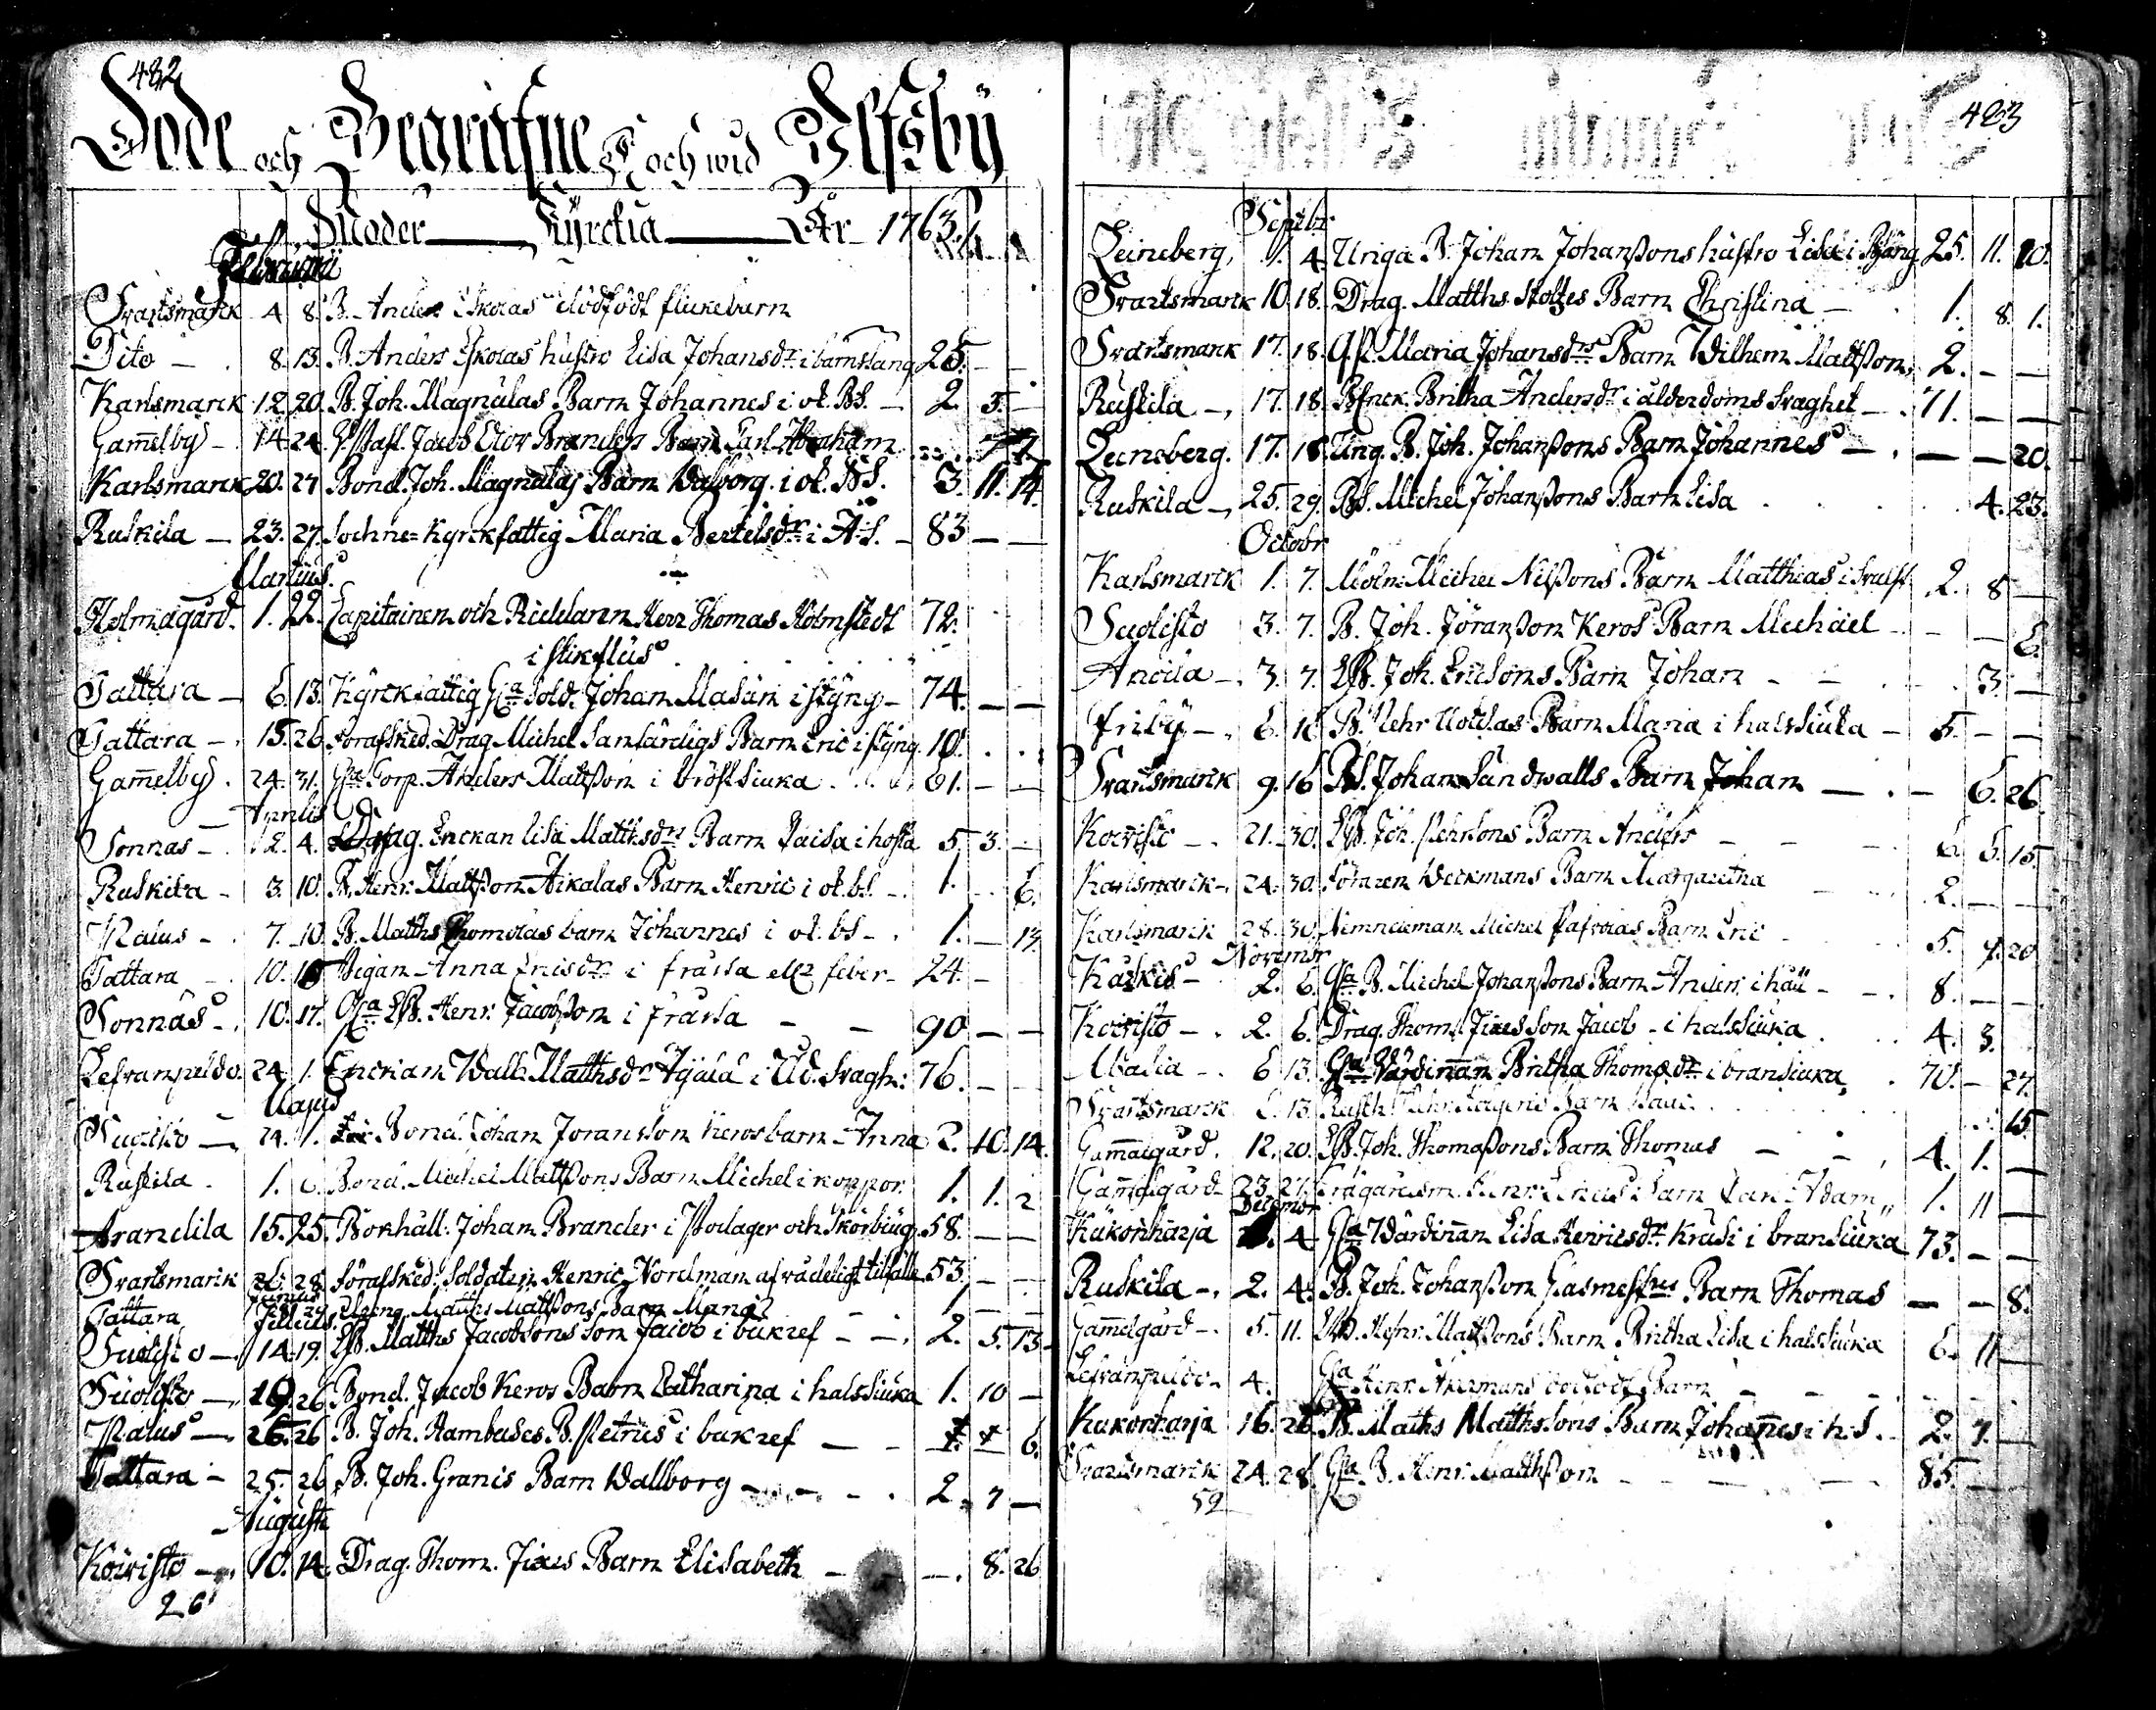 482
Döde och Begrafne och wid Elfsby
Moder Kyrckia Åhr 1763
Februarii
Svartsmarck 4 8. B. Anders Eskolas dödfödt flickebarn
Dito - 8. 13. B. Anders Eskolas hustro Lisa Johansdr. i barnsäng 25. - -
Karlsmarck 12. 20. B. Joh. Magnulas Barn Johannes i ok. BS. - 2. 3. -
Gam̄elby - 14. 24. Jacob Branders Barn Carl Abraham 7.
Karlsmarck 20. 27 Bond. Joh. Magnulas Barn Walborg. i ok. BS. 3. 11. 14.
Ruskila - 23. 27. Sockne-Kyrckfattig Maria Bertelsdr. i Å.S. - 83 - -
Martius
Holmagård. 1. 22. Capitainen och Riddaren Herr Thomas Holmstedt 72.
i stikflus
Tattara - 6. 13. Kyrckfattig Gla Sold. Johan Masurn i styng - 74. - -
Tattara - 15. 26. Förafsked. Drag. Michel Barn Eric i styng. 10. . .
Gam̄elby. 24. 31. Gla Corp. Anders Mattsson i bröstsiuka 61. - -
Aprilis
Sonnäs - 2. 4. Drag. Enckan Lisa Matthsdrs Barn Caisa i hosta 5. 3. -
Ruskila - 3. 10. B. Henr. Mattsson Aikalas Barn Henric i ok. bs. - 1. . 6.
Palus - 7. 10. B. Matths Thomolas barn Johannes i ok. bs - 1. - 13
Tattara - 10. 15 Pigan Anna Ericsdr. i frässa eller feber - 24. -
Sonnäs - 10. 17. Gla LB. Henr. Jacobsson i frässa - - 90 - -
Lefvanpeldo. 24. 1. Enckian Walb. Matthsdr. i Åld. svagh: 76. - -
Majus
Suolisto - 24. 1. Bond. Johan Joransson Keros barn Anna 2. 10. 14.
Ruskila. 1. 6. Bond. Michel Mattsons Barn Michel i koppor. 1. 1. 2
Arandila 15. 25. Bokhåll: Johan Brander i Podager och Skörbiug. 58. - -
Svartsmarck 26. 28. Förafsked. Soldaten Henric Nordman af vådeligt tilfälle 53. - -
Junius
Tattara 24. Matths Mattsons Barn Maria
Julius
Suolisto - 14. 19. LB. Matths Jacobsons son Jacob i bukref - - 2. 5. 13.
Suolisto - 19. 26 Bond. Jacob Keros Barn Catharina i halssiuka 1. 10 -
Palus - 26. 26 B. Joh. Hambudes B. Petrus i bukref - - 6.
Tattara - 25. 26 B. Joh. Granis Barn Wallborg - - - 2. 7 -
Augusti
Koivisto - 10. 14. Drag. Thom. Jixes Barn Elisabeth - - 8. 26
26
483
Septebr
Leineberg, 1. 4. Unga B. Johan Johanssons hustro Lisa i Styng 25. 11. 10.
Svartsmarck 10. 18. Drag. Matths Stoltzes Barn Christina - 1. 8. 1.
Svartsmarck 17. 18. Maria Johansdrs Barn Wilhem Mattsson, 2. - -
Ruskila -, 17. 18. BEnck. Britha Andersdr. i ålderdoms svaghet - 71. - -
Leineberg. 17. 18. Ung. B. Joh. Johanssons Barn Johannes - . - - 20.
Ruskila -, 25. 29. BS. Michel Johanssons Barn Lisa . . . 4. 23.
Octobr
Karlsmarck 1. 7. Möln. Michel Nilssons Barn Matthias i svulst 2. 8 -
Suolisto 3. 7. B. Joh. Jöransson Keros Barn Michael - - 6.
Ancila -. 3. 7. LB. Joh. Ericsons Barn Johan - - . 3. -
Friby -. 6. 16 B. Pehr Barn Maria i halssiuka - 5. - -
Svartsmarck 9. 16 BS. Johan Sundwalls Barn Johan - . - 6. 26.
Koivisto -. 21. 30. LB. Joh. Pehrsons Barn Anders - - 6. 6. 15.
Karlsmarck - 24. 30. Weckmans Barn Margaretha - - 2. - -
Karlsmarck 28. 30. Nämndeman Michel Barn Eric - 5. 9. 20
Novembr
Kärkis - 2. 6. Gla B. Michel Johanssons Barn Anders i håll - - 8. - -
Koivisto -. 2. 6. Drag. Thom. Jixes son Jacob - i halssiuka. 4. 3.
6 13. Gla Värdinnan Britha Thomædr. i bransiuka, 70. - 27.
Svartsmarck 6. 13. Barn 15.
Gam̄algård. 12. 20. LB. Joh. Thomassons Barn Thomas - - 4. 1. -
Gam̄algård 23. 27. Trägårdsm. Barn Carl Adam 1. 11 -
Decembr
Kukonharja 4 Gla Wärdin̄an Lisa Henricsdr. Krusi i bransiuka 73. - -
Ruskila -. 2. 4. B. Joh. Johansson Barn Thomas - - 8.
Gam̄elgård -. 5. 11. LB. Henr. Mattsons Barn Britha Lisa i halssiuka 6. 11 -
Lefvanpeldo - 4. Gla Henr. Åkermans dödfödt Barn - - -
Kukonharja 16. 26. B. Matths Matthssons Barn Johan̄es i h.S. 2. 7. -
Svartsmarck 24. 28. Gla B. Henr. Matthsson - - - 85. -
52